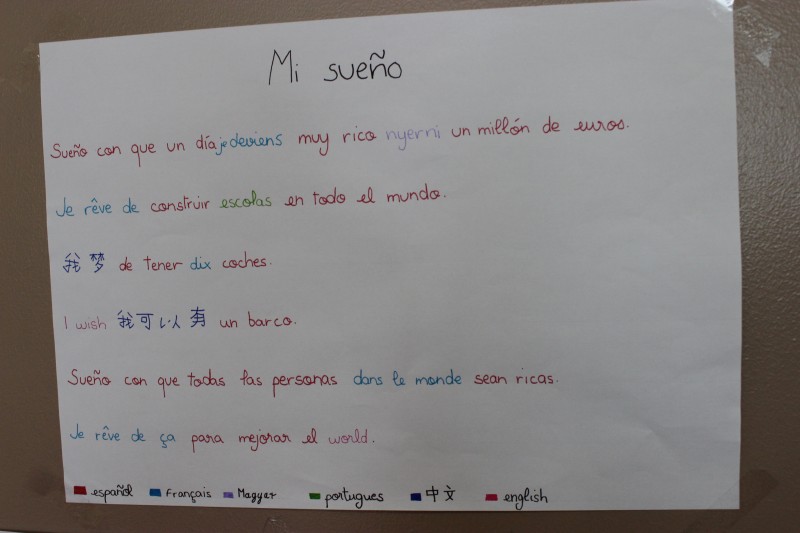 Mi sueño
Sueño con que un día je deviens muy rico nyerni un millón de euros.
Je rêve de construir escolas en todo el mundo.
我 梦 de tener dix coches.
I wish 我可以有 un barco.
Sueño con que todas las personas dans le monde sean ricas.
Je rêve de ça para mejorar el world.
español Français Magyar portugues 中文 english